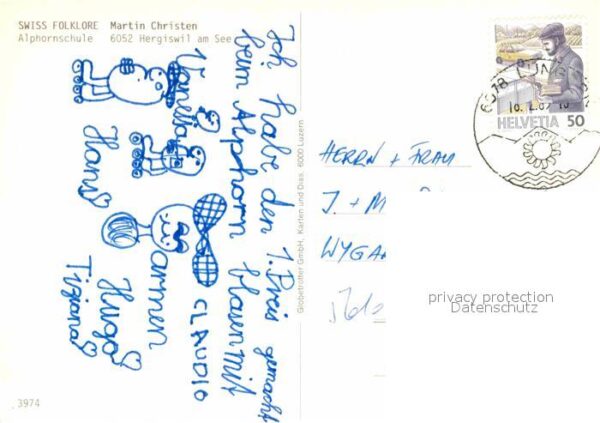 SWISS FOLKLORE Martin Christen
Alphornschule 6052 Hergiswil am See
Ich habe den 1. Preis gemacht
beim Alphorn blasen mit
Vanella
CLAUDIO
armen
Hans
Hugo
Tiziana
Globetrotter GmbH, Karten und Dias, 6000 Luzern
6078 LUNG
HELVETIA 50
HERRN + FRAU
J. + M
WYGA
privacy protection
Datenschutz
3974